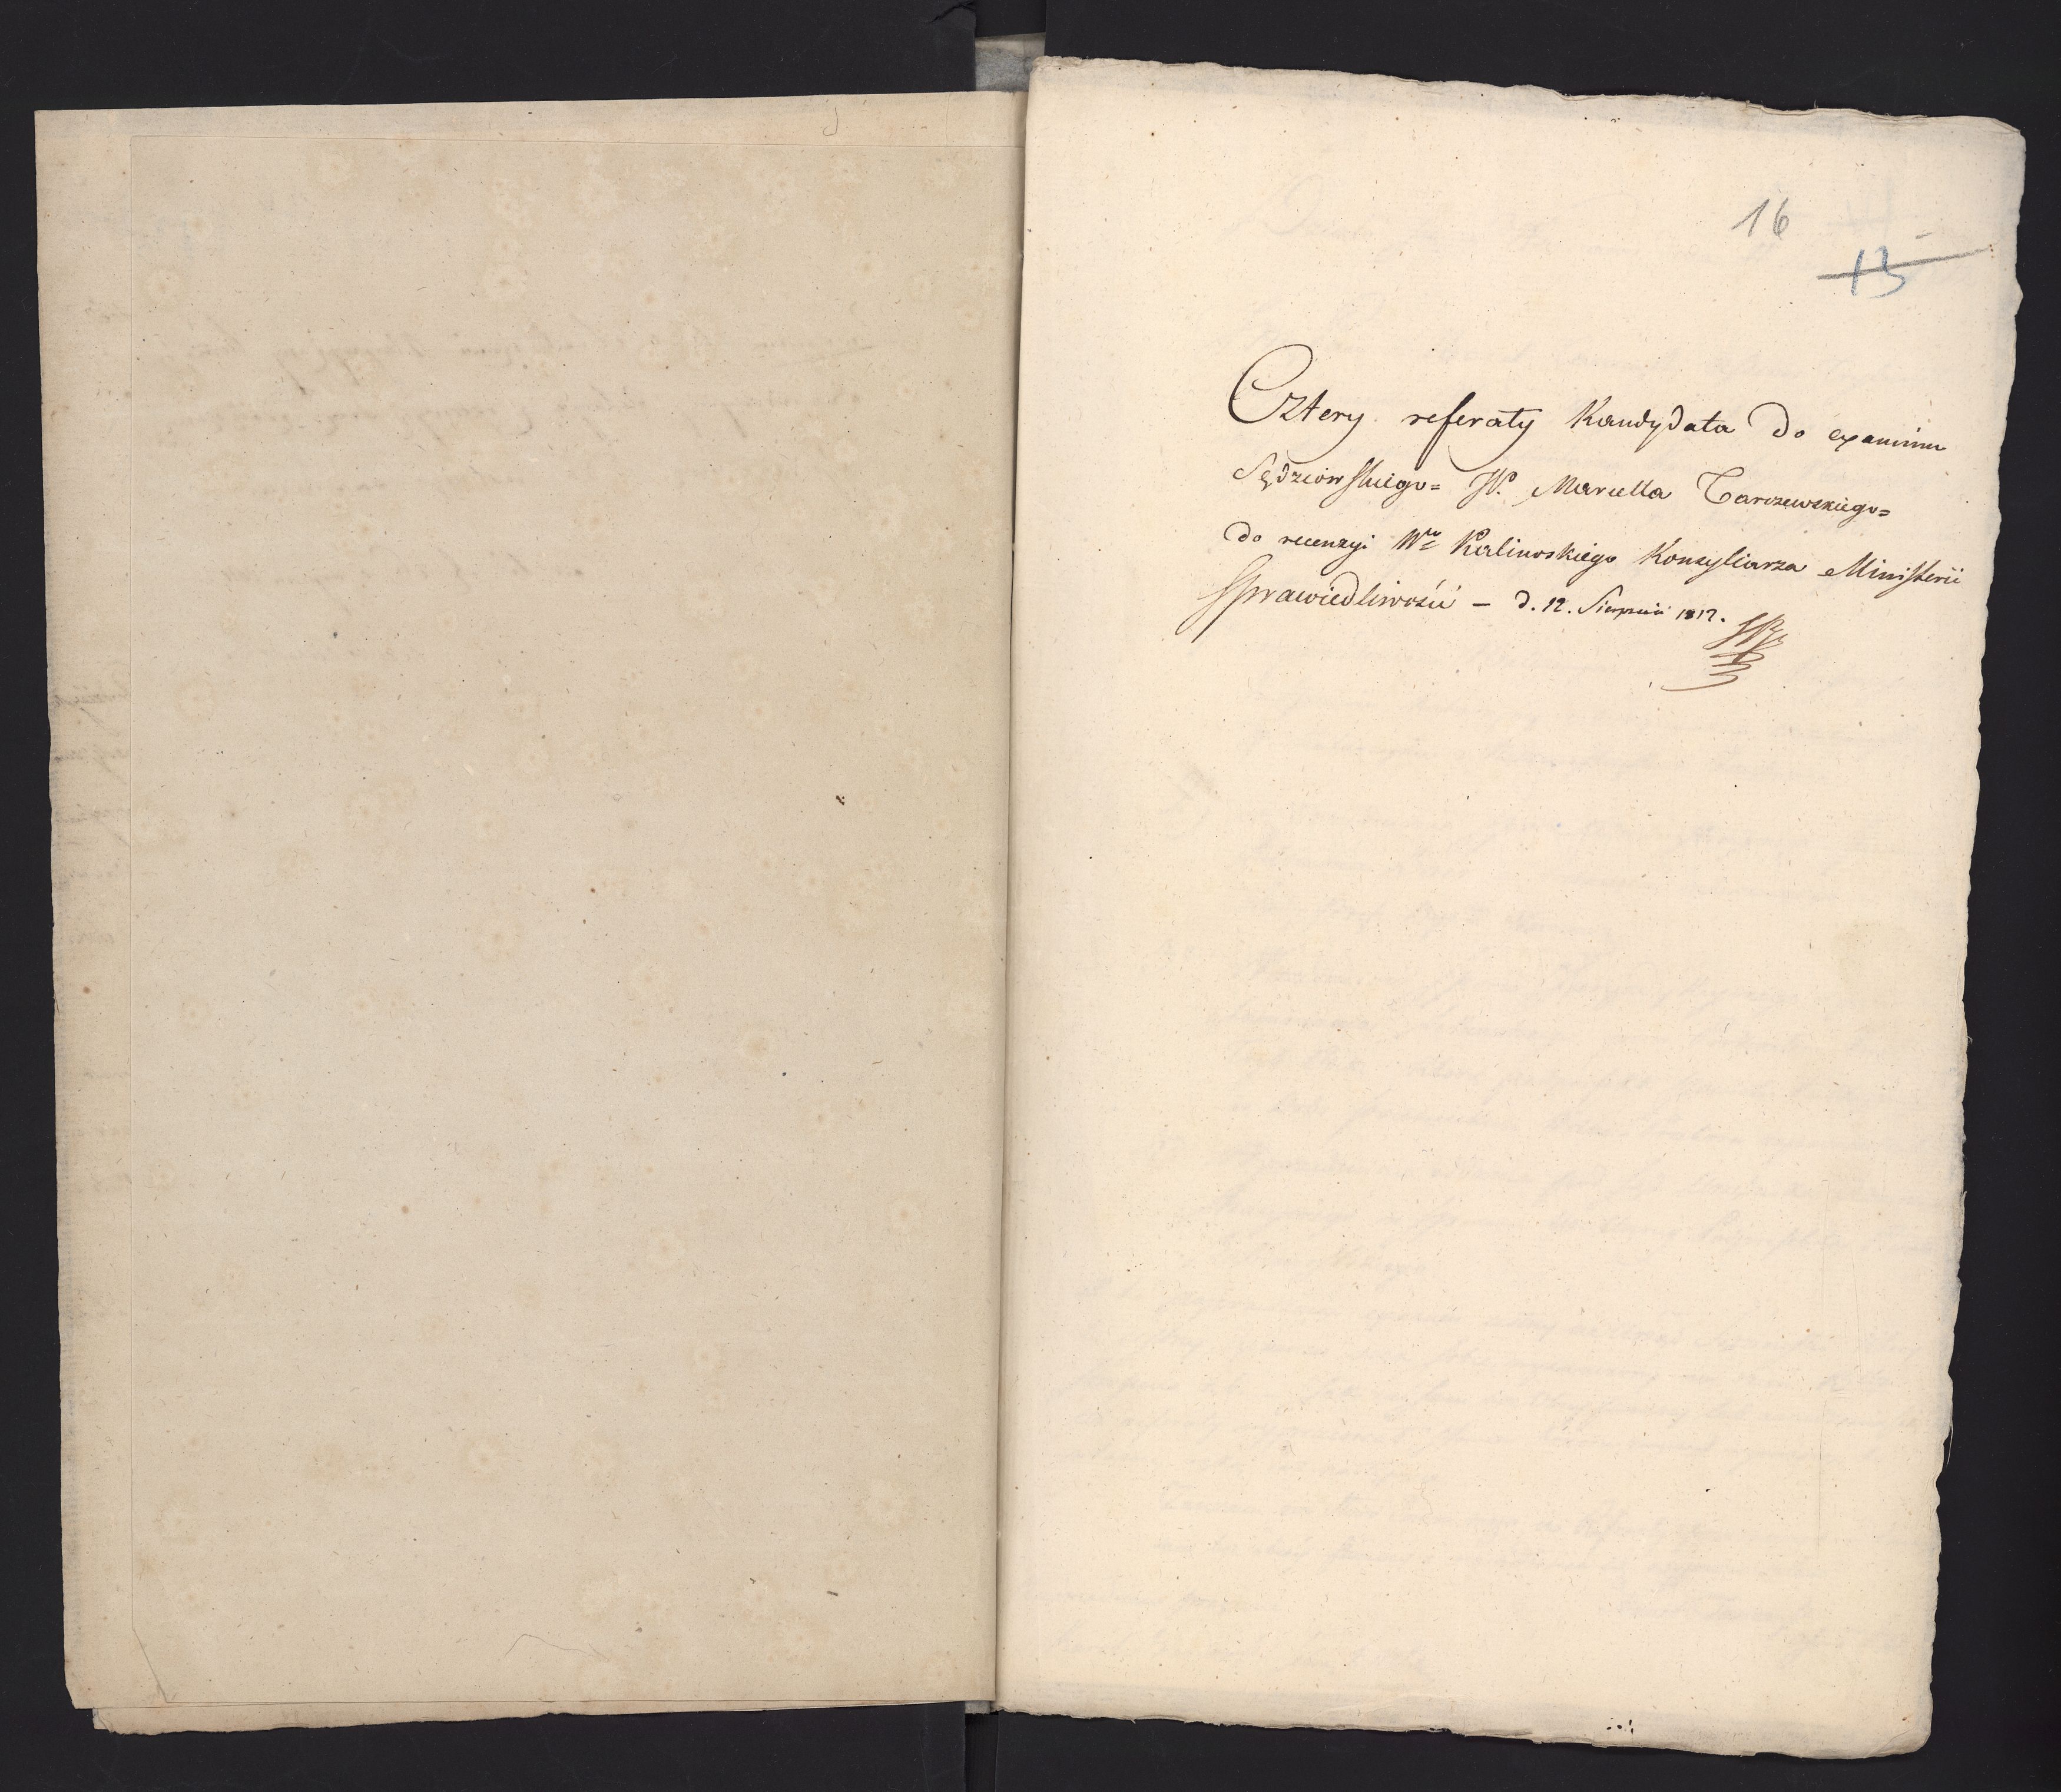 16
13
Cztery referaty Kandydata do examinu
Sędziowskiego= W. Marcella Tarczewskiego=
do recenzyi Wgo Kalinoskiego Konsyliarza Ministerii
Sprawiedliwości – d. 12. Sierpnia 1812.